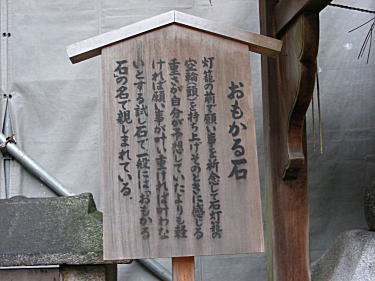 おもかる石
灯籠の前で願い事を祈念して石灯籠の
空輪(頭)を持ち上げ、そのときに感じる
重さが、自分が予想していたよりも軽
ければ願い事が叶い、重ければ叶わな
いとする試し石で、一般には「おもかる
石」の名で親しまれている。